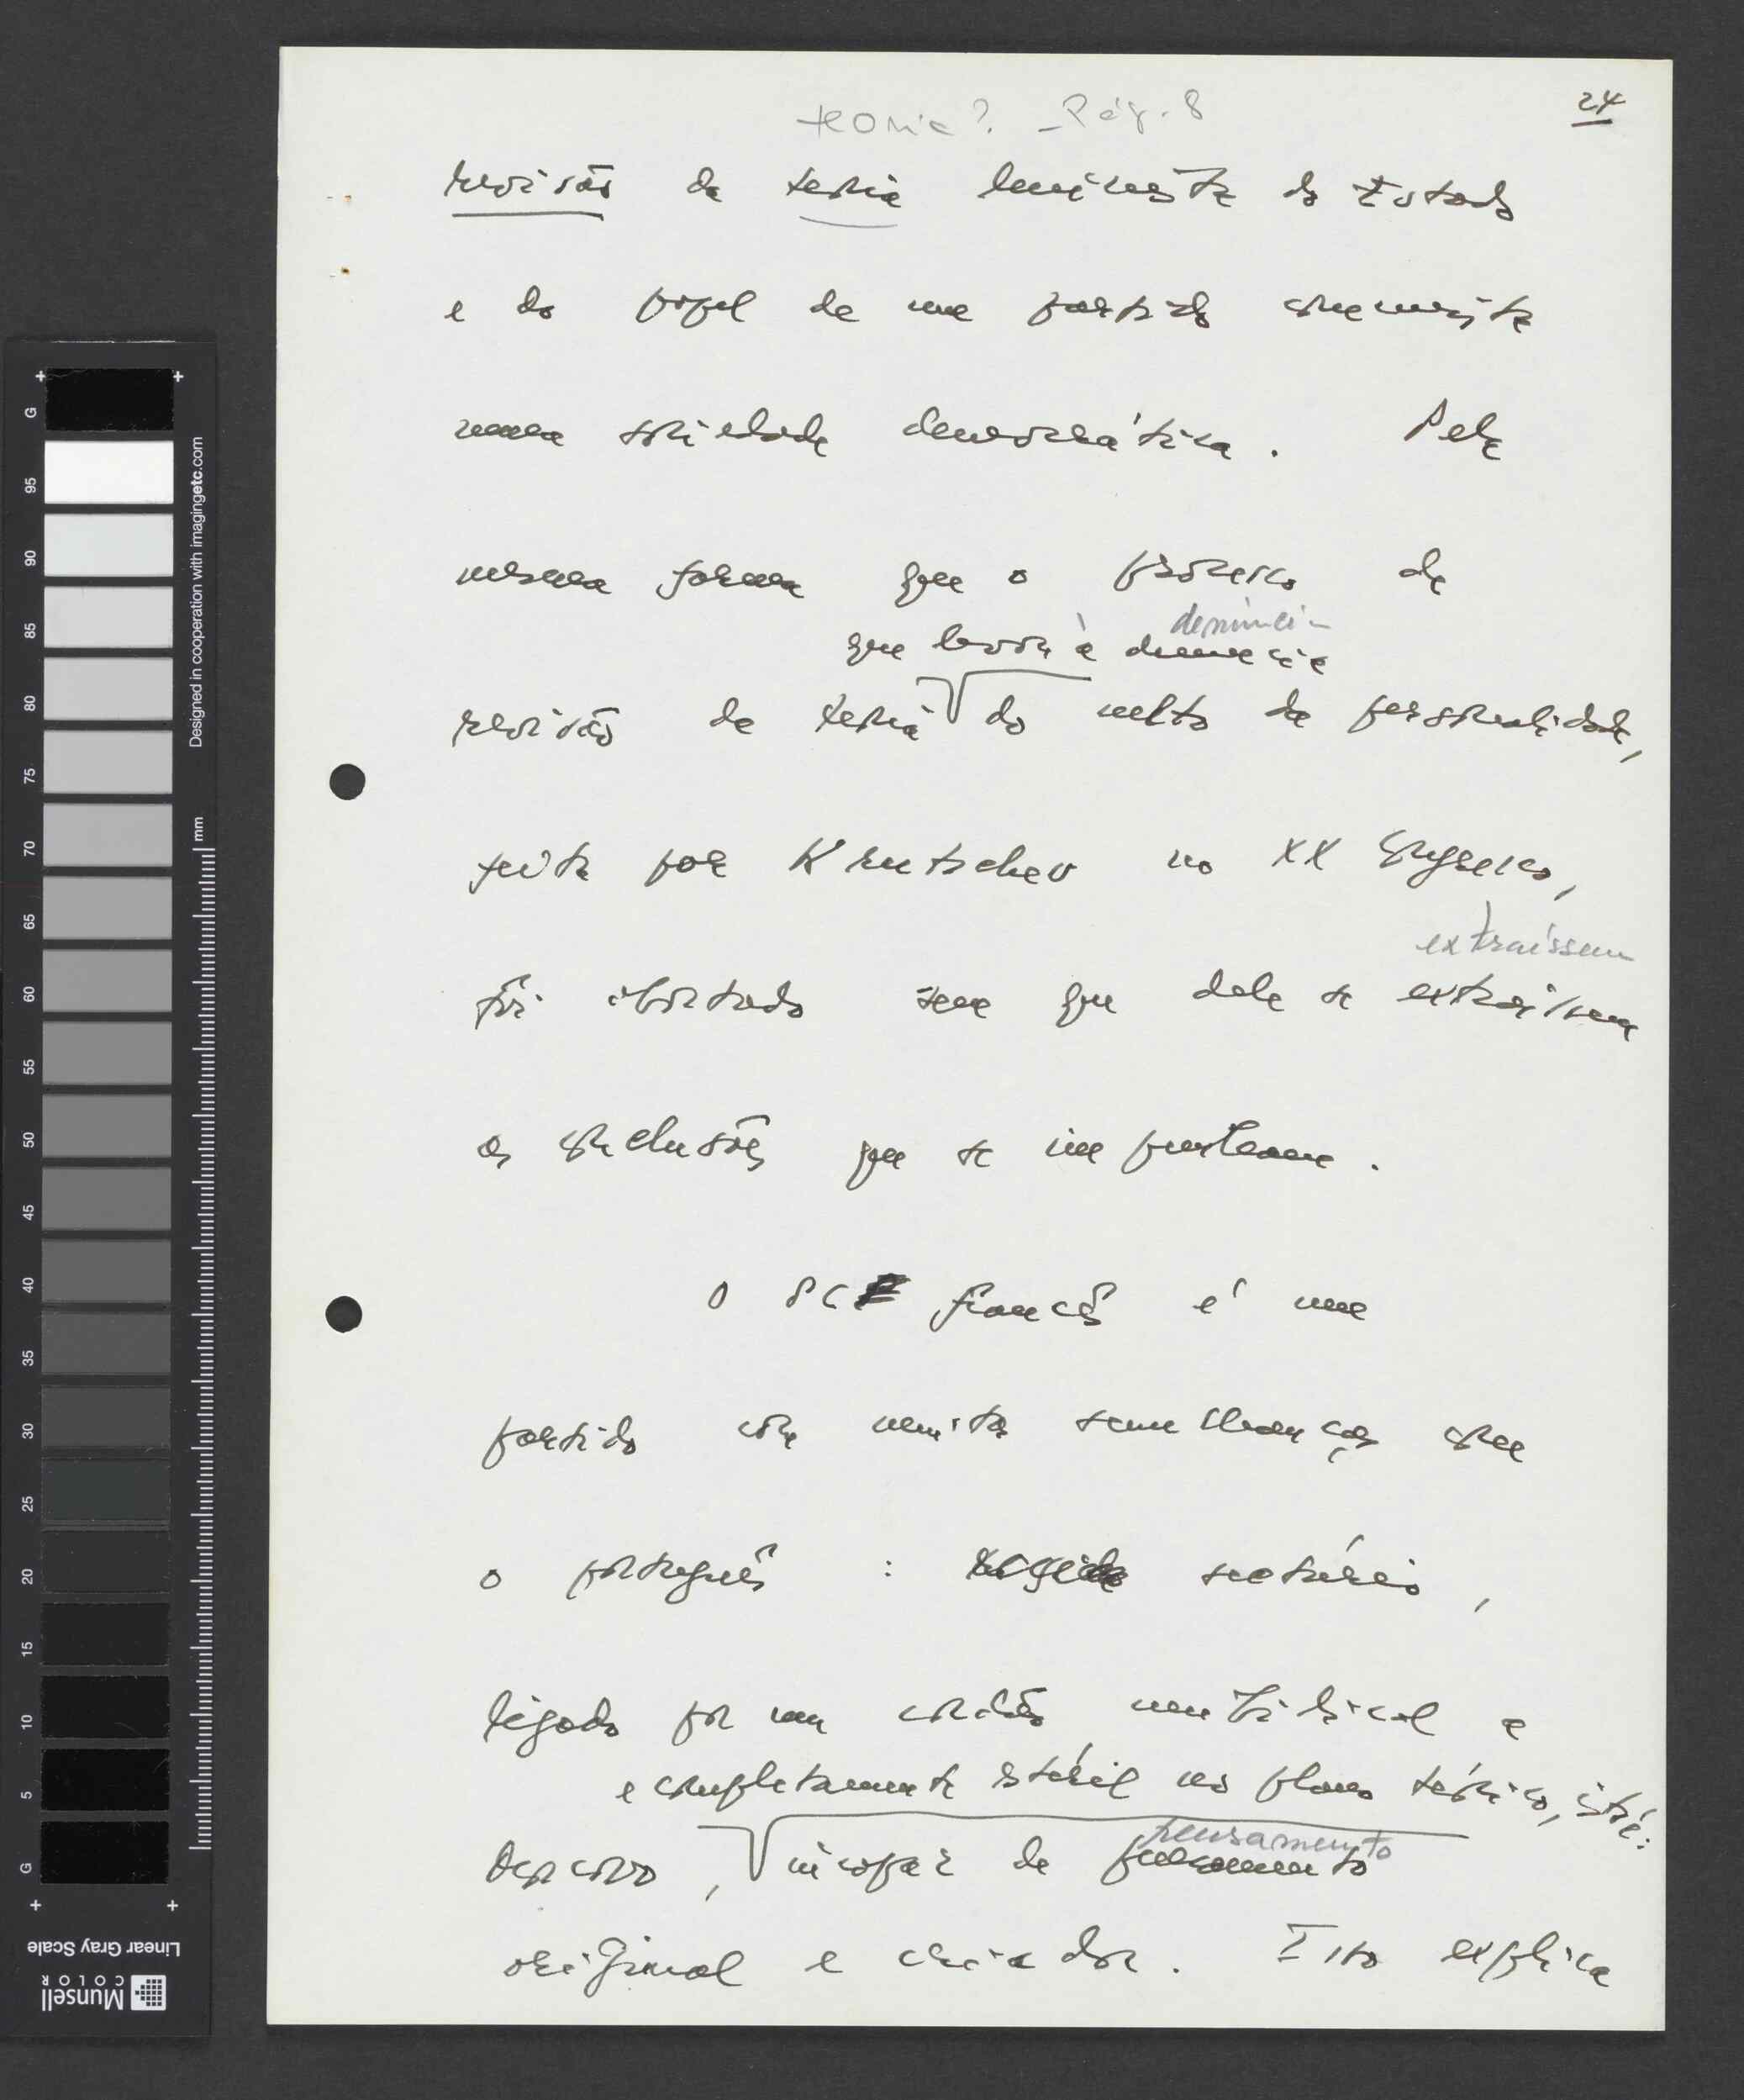 24
teoria? - Pág. 8
revisão da teoria leninista do Estado
e do papel de um partido comunista
numa sociedade democrática. Pela
mesma forma que o processo de
denúncia
que levou à denúncia
revisão da teoria do culto da personalidade,
feita por Krutschev no XX Congresso,
extraíssem
foi abortado sem que dele se extraíssem
as conclusões que se impunham.
O PC francês é um
partido com muitas semelhanças com
o português : sectário,
ligado por um cordão umbilical a
e completamente estéril no plano teórico, isto é:
Moscovo, incapaz de pensamento
pensamento
original e criador. Isto explica
Designed in cooperation with imagingetc.com
mm
G
95
90
85
80
75
70
65
60
55
50
45
40
35
30
25
20
15
10
5
G
Linear Gray Scale
Munsell
COLOR